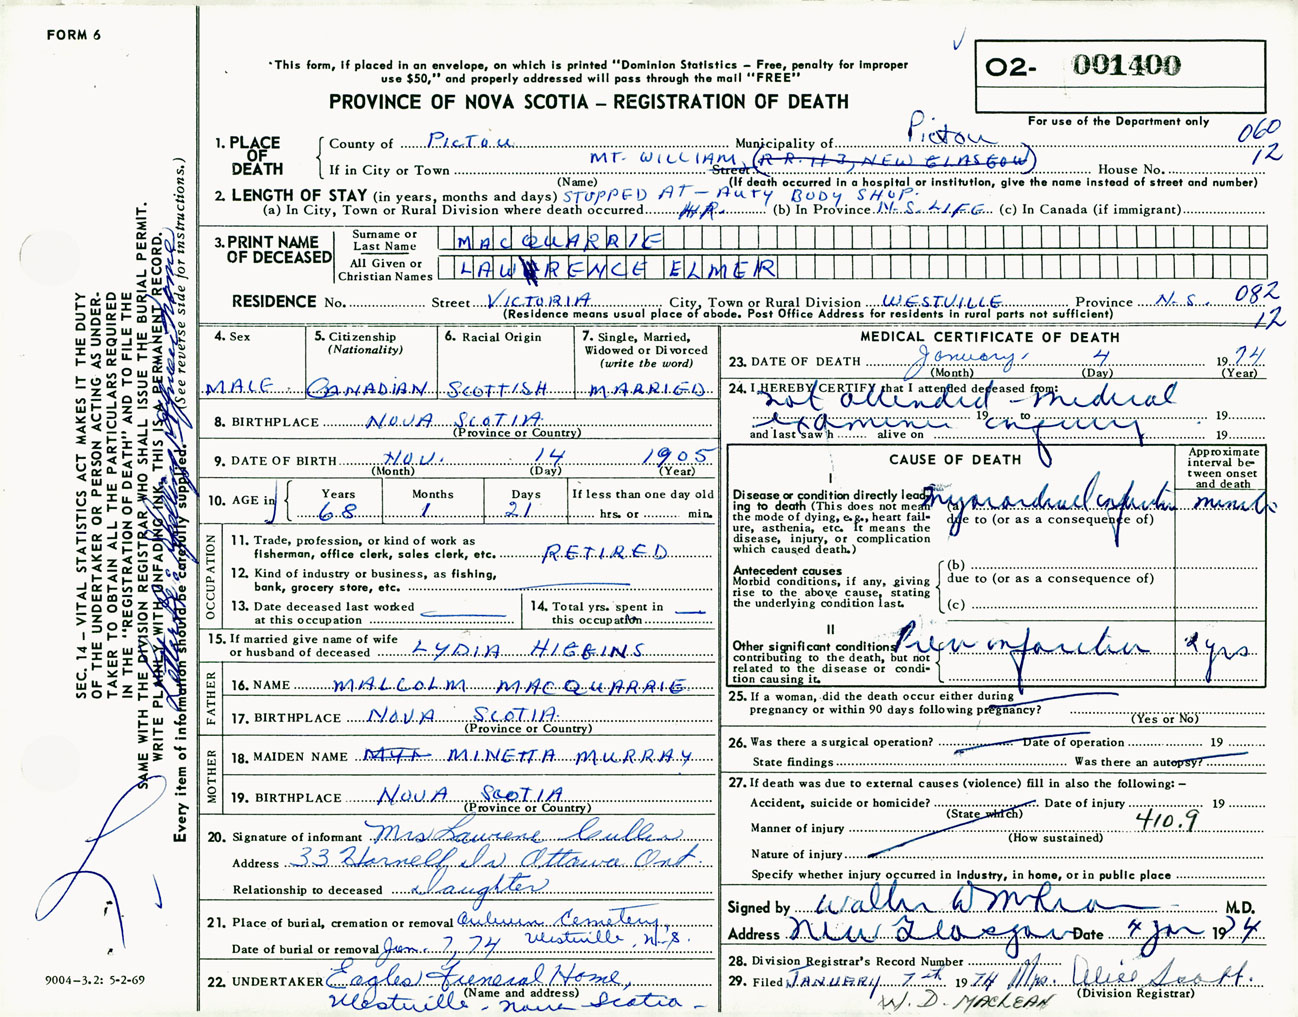 FORM 6
"This form, if placed in an envelope, on which is printed "Dominion Statistics – Free, penalty for improper
use $50," and properly addressed will pass through the mail "FREE"
PROVINCE OF NOVA SCOTIA – REGISTRATION OF DEATH
O2- 001400
For use of the Department only
060
12
1. PLACE OF DEATH
County of PICTOU Municipality of Pictou
If in City or Town MT. WILLIAM, (R.R. # 3, NEW GLASGOW) Street House No.
(Name) (If death occurred in a hospital or institution, give the name instead of street and number)
2. LENGTH OF STAY (in years, months and days) STOPPED AT – AUTY BODY SHOP.
(a) In City, Town or Rural Division where death occurred HR. (b) In Province N.S. LIFE (c) In Canada (if immigrant)
3. PRINT NAME OF DECEASED
Surname or Last Name MACQUARRIE
All Given or Christian Names LAWRENCE ELMER
RESIDENCE No. Street VICTORIA City, Town or Rural Division WESTVILLE Province N.S. 082
(Residence means usual place of abode. Post Office Address for residents in rural parts not sufficient) 12
4. Sex
MALE
5. Citizenship
(Nationality)
CANADIAN
6. Racial Origin
SCOTTISH
7. Single, Married,
Widowed or Divorced
(write the word)
MARRIED
8. BIRTHPLACE NOVA SCOTIA
(Province or Country)
9. DATE OF BIRTH NOV. 14 1905
(Month) (Day) (Year)
10. AGE in
Years Months Days If less than one day old
68 1 21 hrs. or min.
OCCUPATION
11. Trade, profession, or kind of work as
fisherman, office clerk, sales clerk, etc. RETIRED
12. Kind of industry or business, as fishing,
bank, grocery store, etc.
13. Date deceased last worked
at this occupation
14. Total yrs. spent in
this occupation
15. If married give name of wife
or husband of deceased LYDIA HIGGINS
FATHER
16. NAME MALCOLM MACQUARRIE
17. BIRTHPLACE NOVA SCOTIA
(Province or Country)
MOTHER
18. MAIDEN NAME MINETTA MURRAY
19. BIRTHPLACE NOVA SCOTIA
(Province or Country)
20. Signature of informant Mrs
Address 33 Ottawa Ont.
Relationship to deceased Daughter
21. Place of burial, cremation or removal Auburn Cemetery,
Westville, N.S.
Date of burial or removal Jan. 7, 74
22. UNDERTAKER Eagles Funeral Home,
(Name and address)
Westville – Nova Scotia –
MEDICAL CERTIFICATE OF DEATH
23. DATE OF DEATH January 4 1974
(Month) (Day) (Year)
24. I HEREBY CERTIFY that I attended deceased from:
not attended – medical
19 to 19
examiner enquiry
and last saw h alive on 19
CAUSE OF DEATH
Approximate
interval be-
tween onset
and death
I
Disease or condition directly lead-
ing to death (This does not mean
the mode of dying, e.g., heart fail-
ure, asthenia, etc. It means the
disease, injury, or complication
which caused death.)
(a) myocardial infarction minutes
due to (or as a consequence of)
Antecedent causes
Morbid conditions, if any, giving
rise to the above cause, stating
the underlying condition last.
(b)
due to (or as a consequence of)
(c)
II
Other significant conditions
contributing to the death, but not
related to the disease or condi-
tion causing it.
Prev infarction 2 yrs
25. If a woman, did the death occur either during
pregnancy or within 90 days following pregnancy?
(Yes or No)
26. Was there a surgical operation? Date of operation 19
State findings Was there an autopsy?
27. If death was due to external causes (violence) fill in also the following: –
Accident, suicide or homicide? Date of injury 19
(State which)
Manner of injury 410.9
(How sustained)
Nature of injury
Specify whether injury occurred in industry, in home, or in public place
Signed by M.D.
Address New Glasgow Date 4 Jan 1974
28. Division Registrar's Record Number
29. Filed JANUARY 7th 1974 Mrs. Alice Scott.
(Division Registrar)
W. D. MACLEAN
SEC. 14 – VITAL STATISTICS ACT MAKES IT THE DUTY
OF THE UNDERTAKER OR PERSON ACTING AS UNDER-
TAKER TO OBTAIN ALL THE PARTICULARS REQUIRED
IN THE "REGISTRATION OF DEATH" AND TO FILE THE
SAME WITH THE DIVISION REGISTRAR WHO SHALL ISSUE THE BURIAL PERMIT.
WRITE PLAINLY WITH UNFADING INK, THIS IS A PERMANENT RECORD.
Every item of information should be carefully supplied. (See reverse side for instructions.)
9004–3.2: 5-2-69